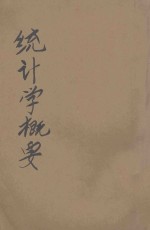 统计学概要